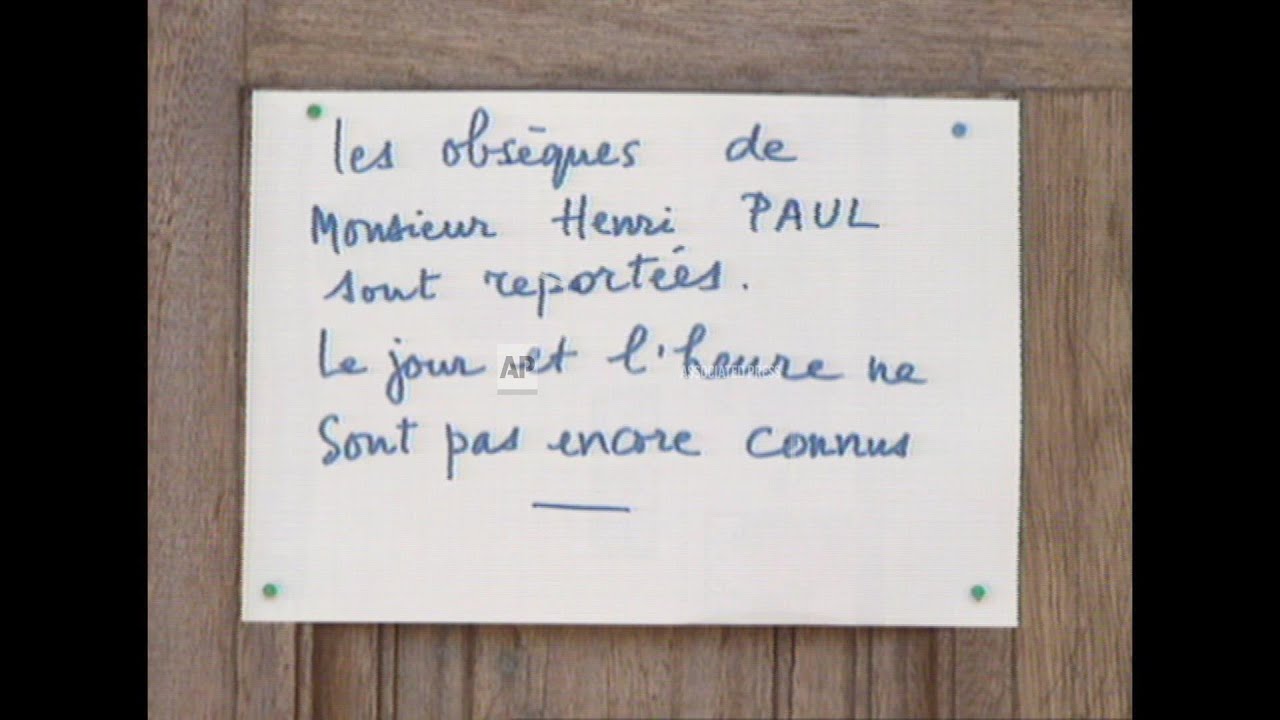 les obsèques de
Monsieur Henri PAUL
sont reportées.
Le jour et l'heure ne
Sont pas encore connus
AP
ASSOCIATED PRESS